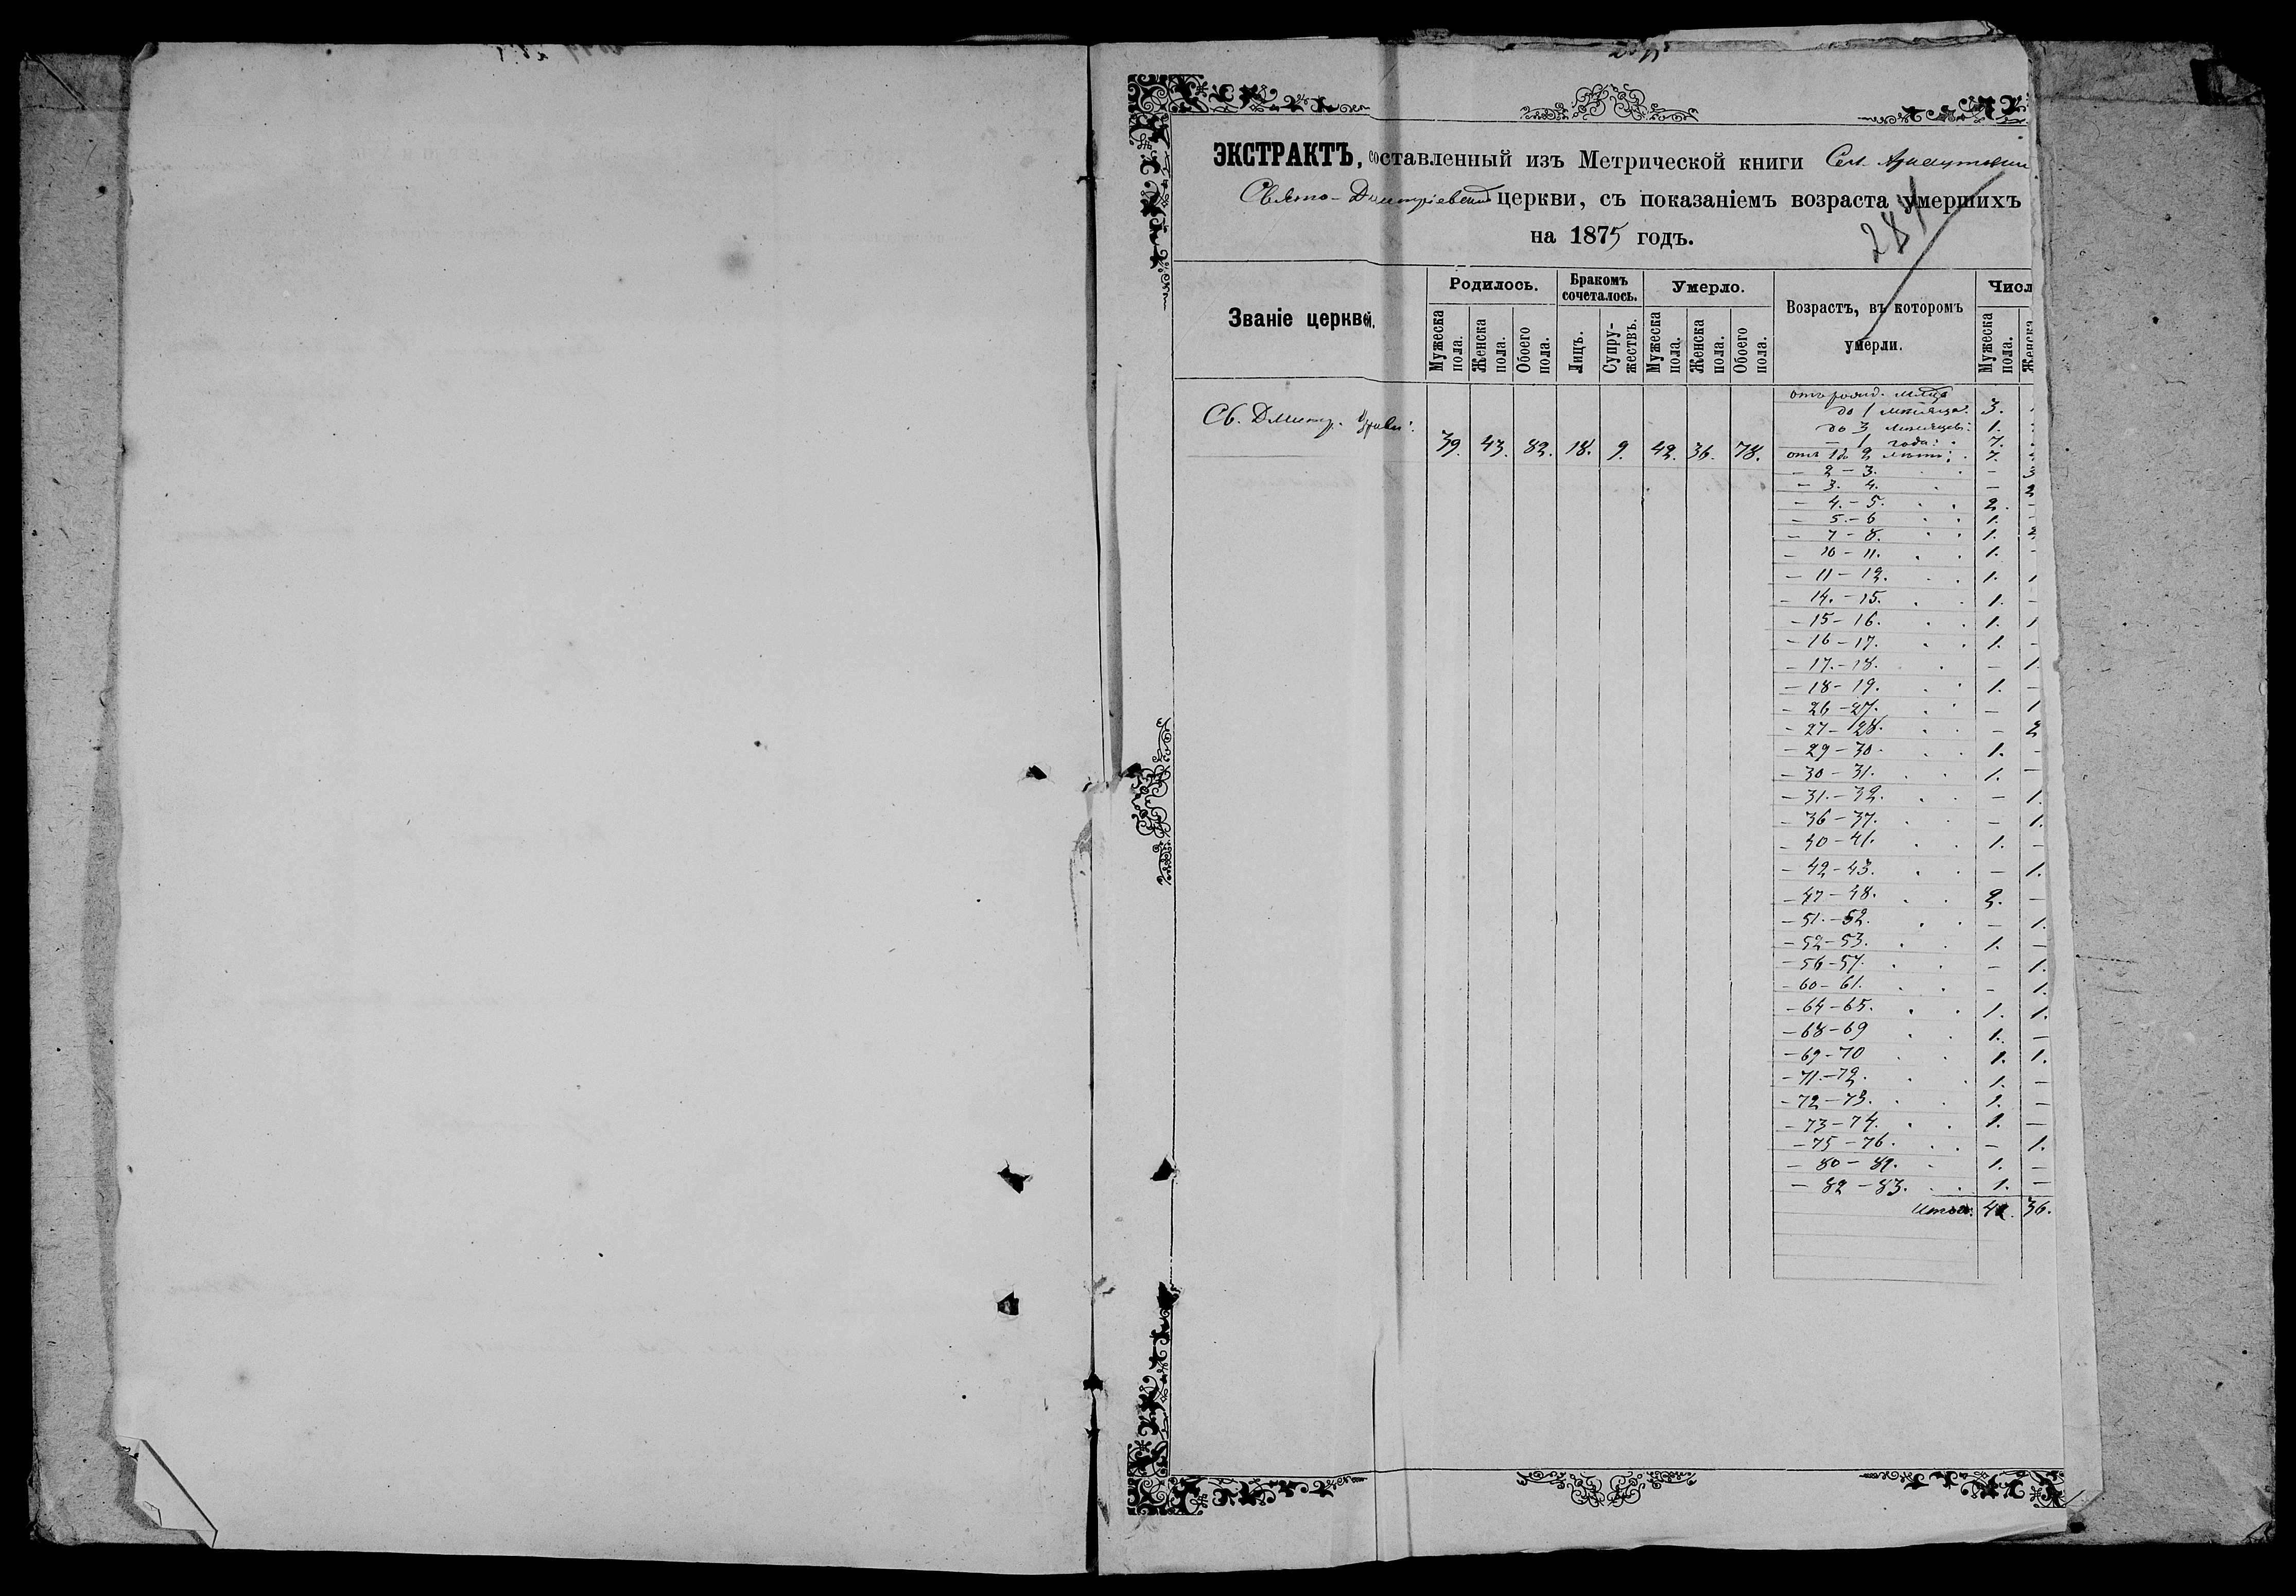 ЭКСТРАКТЪ, составленный изъ Метрической книги Сел.
Свято-Димитріевской церкви, съ показаніемъ возраста умершихъ
на 1875 годъ.
284
Званіе церквей.
Родилось.
Бракомъ сочеталось.
Умерло.
Возрастъ, въ которомъ умерли.
Числ
Мужеска пола.
Женска пола.
Обоего пола.
Лицъ.
Супружествъ.
Мужеска пола.
Женска пола.
Обоего пола.
Мужеска пола.
Женска
Св. Димитр.
39. 43. 82. 18. 9. 42. 36. 78.
отъ рожд.
до 1 мѣсяца. 3.
до 3 мѣсяцевъ: 1.
— 1 года: 7.
отъ 1 до 2 лѣтъ: 7.
— 2 — 3. — 3
— 3. 4. — 2
— 4. — 5. 2. —
— 5. — 6 1. —
— 7 — 8. 1. 2
— 10 — 11. 1. —
— 11 — 12. 1. 1
— 14. — 15. 1. —
— 15 — 16. 1. 1
— 16 — 17. 1. —
— 17. — 18. — 1.
— 18 — 19. 1. —
— 26 — 27. — 1
— 27 — 28. — 2
— 29 — 30. 1. —
— 30 — 31. 1. —
— 31. — 32. — 1.
— 36 — 37. — 1.
— 40 — 41. 1. —
— 42 — 43. — 1.
— 47 — 48. 2. —
— 51. — 52. — 1.
— 52 — 53. 1. —
— 56 — 57. — 1.
— 60 — 61. — 1.
— 64 — 65. 1. 1.
— 68 — 69 1. —
— 69 — 70 1. 1.
— 71. — 72. 1. —
— 72 — 73. 1. —
— 73 — 74. 1. —
— 75 — 76. — 1.
— 80 — 81. 1. —
— 82 — 83. 1. —
Итого: 42. 36.